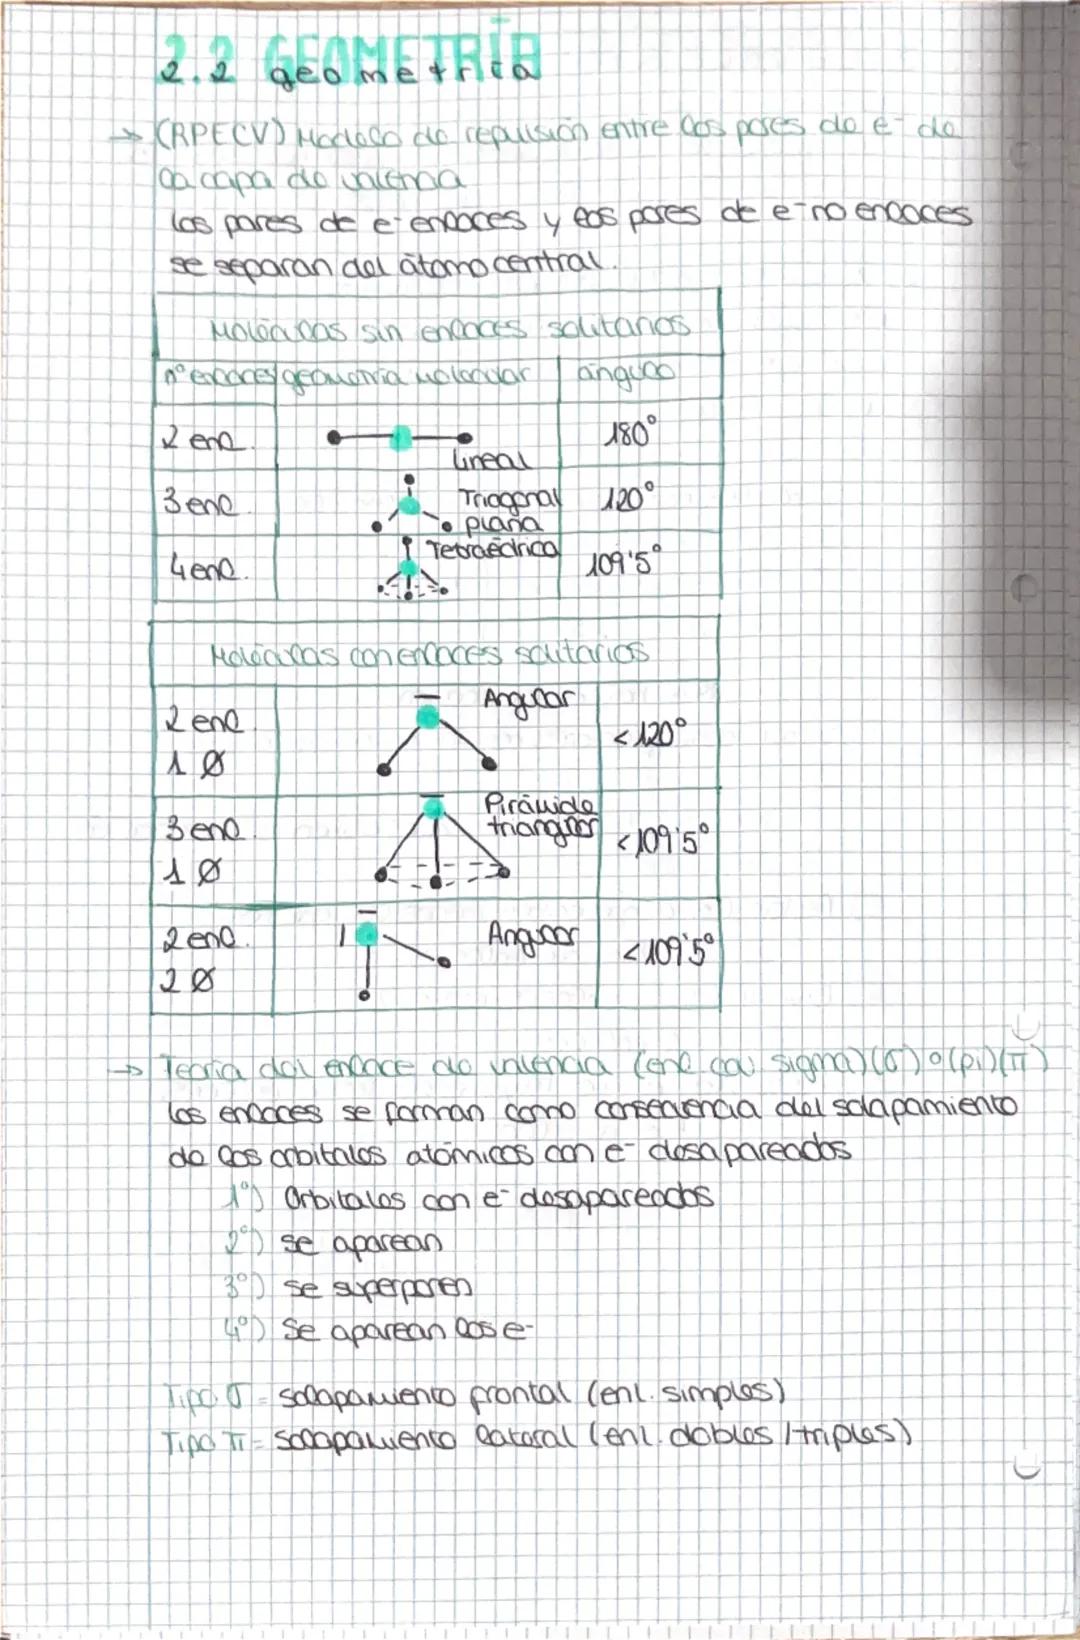 2.2 GEOMETRÍA
geometría
→ (RPECV) Modelo de repulsión entre los pares de e- de
la capa de valencia
los pares de e- enlaces y los pares de e- no enlaces
se separan del átomo central.
Moléculas sin enlaces solitarios
nº enlaces geometría molecular ángulo
2 enl. lineal 180°
3 enl. Triagonal plana 120°
4 enl. Tetraédrica 109'5°
Moléculas con enlaces solitarios
2 enl. 1 Ø Angular <120°
3 enl. 1 Ø Pirámide triangular <109'5°
2 enl. 2 Ø Angular <109'5°
→ Teoría del enlace de valencia (enl. cov. sigma)(σ) o (pi)(π)
los enlaces se forman como consecuencia del solapamiento
de los orbitales atómicos con e- desapareados
1º) Orbitales con e- desapareados
2º) se aparean
3º) se superponen
4º) Se aparean los e-
Tipo σ = solapamiento frontal (enl. simples)
Tipo π = solapamiento lateral (enl. dobles / triples)